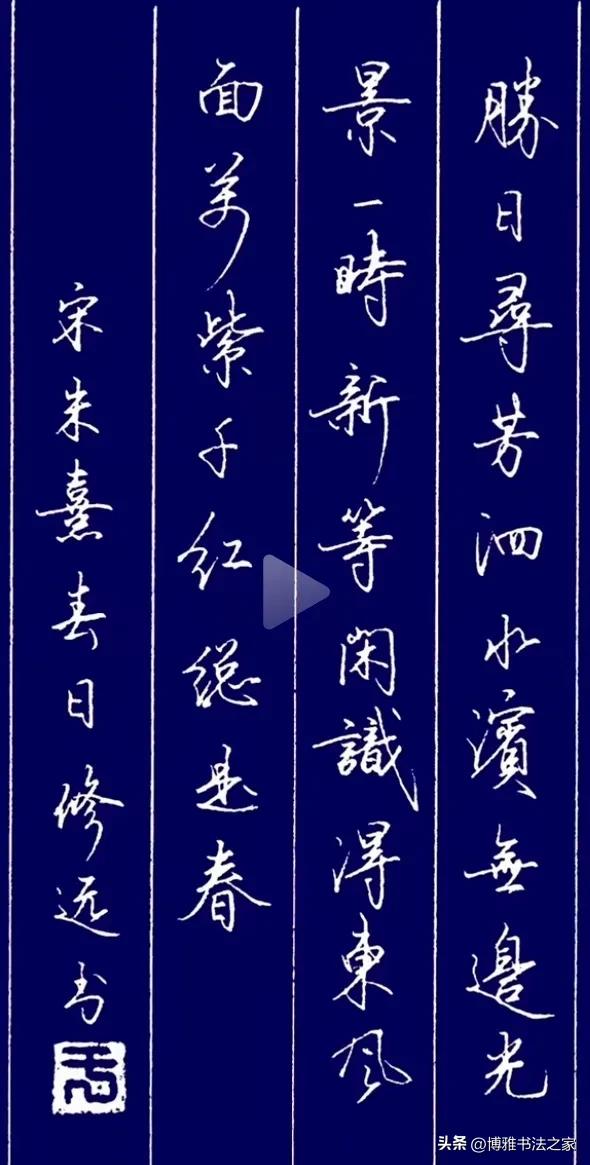 勝日尋芳泗水濱無邊光
景一時新等閑識得東風
面萬紫千红總是春
宋朱熹春日修远书
头条 @博雅书法之家